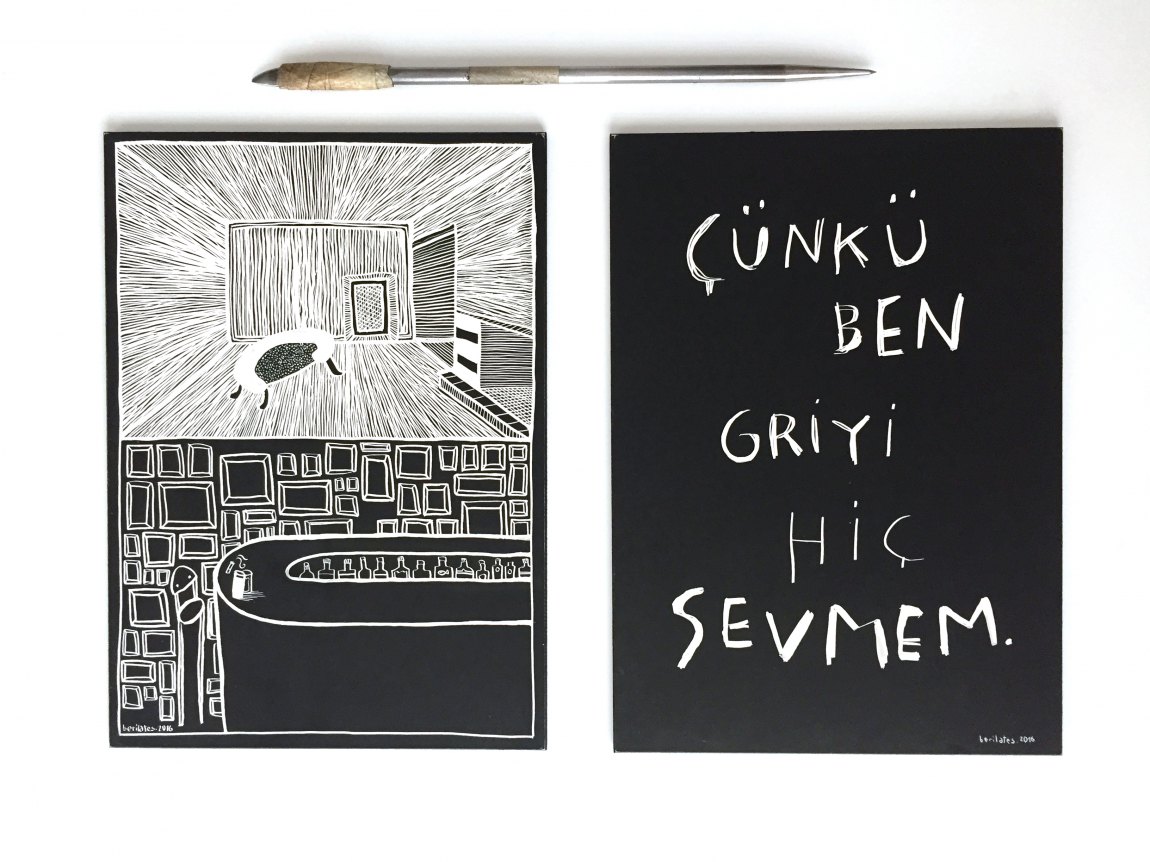 berilates.2016
ÇÜNKÜ
BEN
GRİYİ
HİÇ
SEVMEM.
berilates.2016